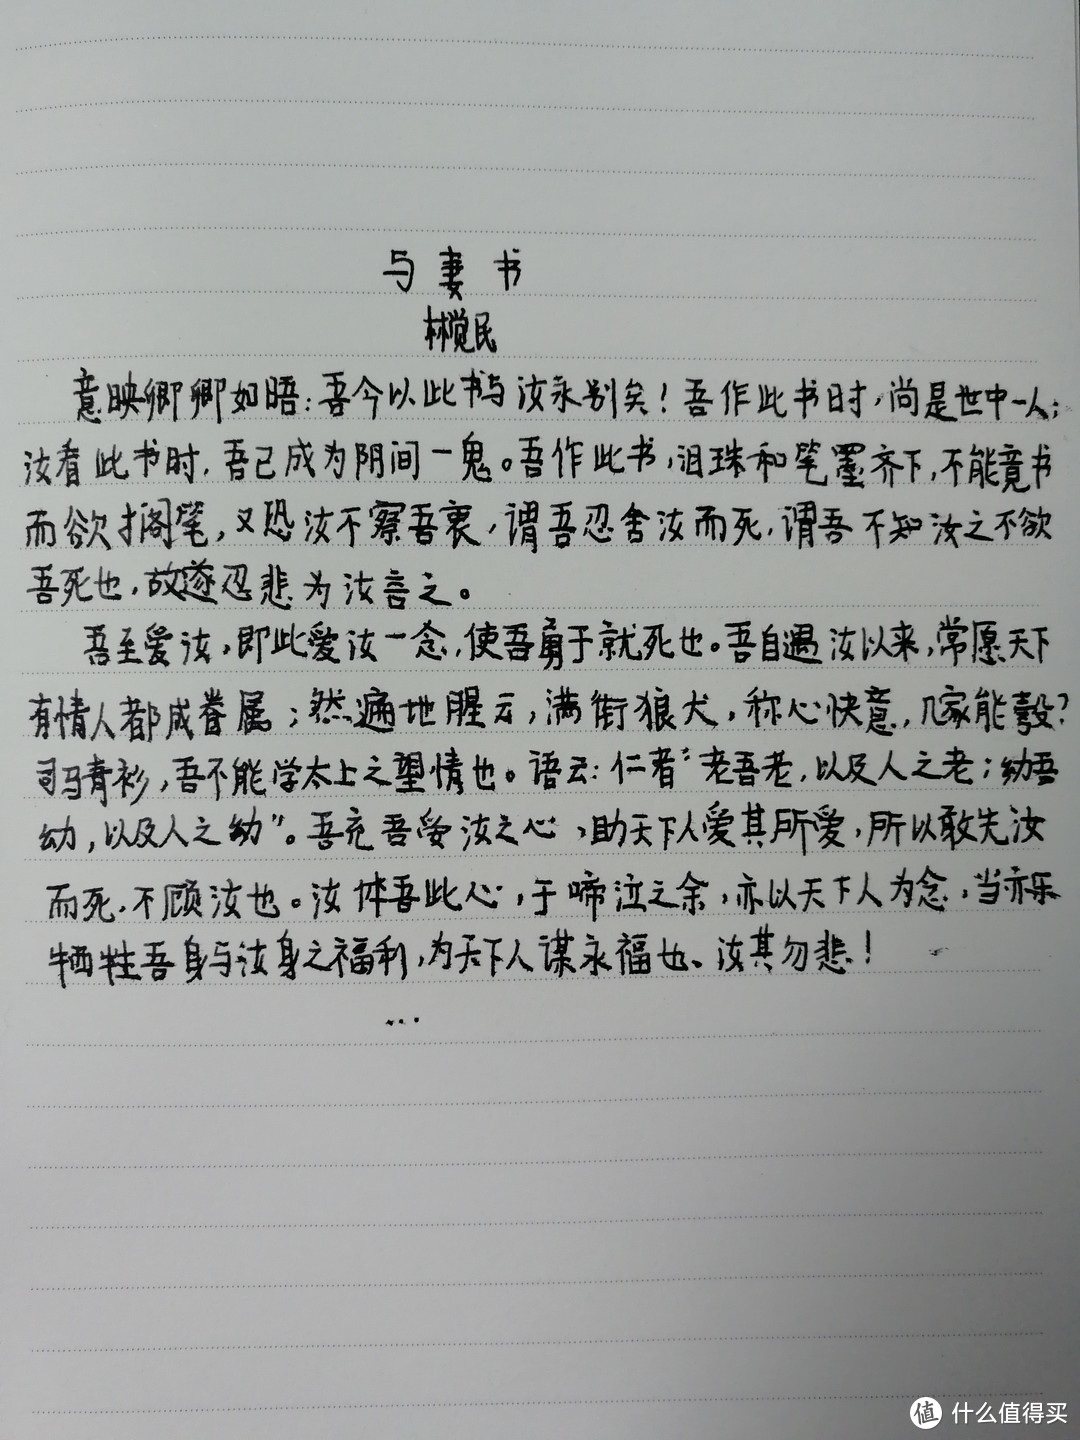 与妻书
林觉民
意映卿卿如晤：吾今以此书与汝永别矣！吾作此书时，尚是世中一人；
汝看此书时，吾已成为阴间一鬼。吾作此书，泪珠和笔墨齐下，不能竟书
而欲搁笔，又恐汝不察吾衷，谓吾忍舍汝而死，谓吾不知汝之不欲
吾死也，故遂忍悲为汝言之。
吾至爱汝，即此爱汝一念，使吾勇于就死也。吾自遇汝以来，常愿天下
有情人都成眷属；然遍地腥云，满街狼犬，称心快意，几家能彀？
司马青衫，吾不能学太上之望情也。语云：仁者“老吾老，以及人之老；幼吾
幼，以及人之幼”。吾充吾爱汝之心，助天下人爱其所爱，所以敢先汝
而死，不顾汝也。汝体吾此心，于啼泣之余，亦以天下人为念，当亦乐
牺牲吾身与汝身之福利，为天下人谋永福也、汝其勿悲！
...
值 什么值得买